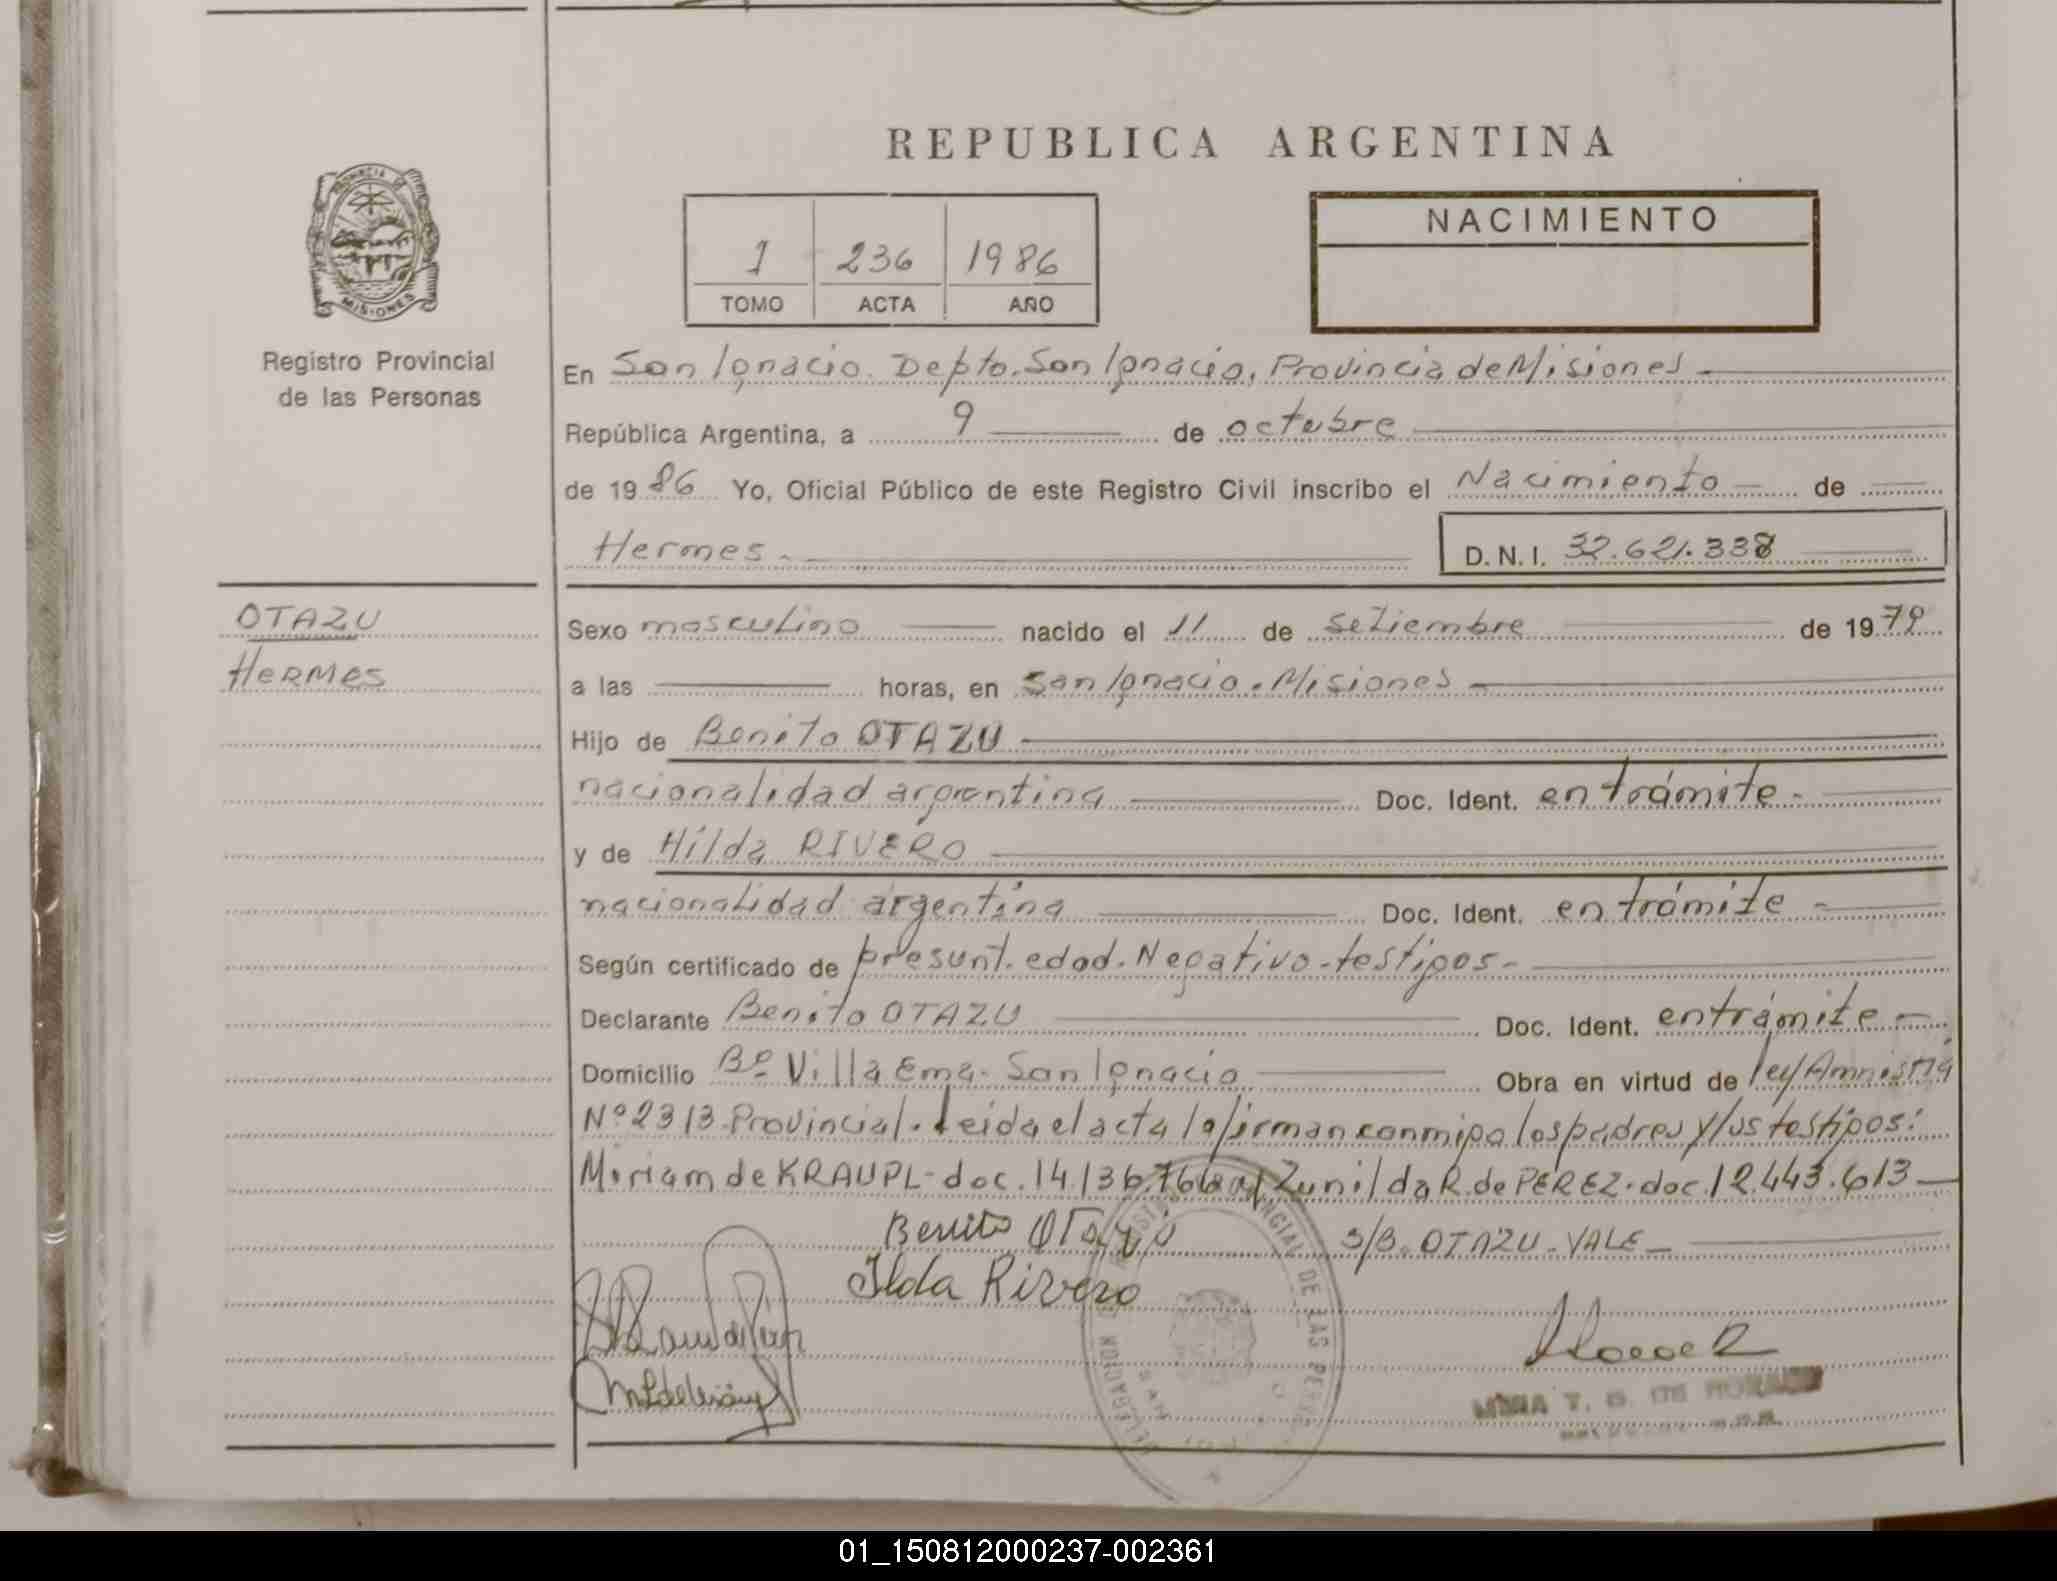 REPUBLICA ARGENTINA
PROVINCIA DE MISIONES
Registro Provincial
de las Personas
1 236 1986
TOMO ACTA AÑO
NACIMIENTO
En San Ignacio. Depto. San Ignacio, Provincia de Misiones
República Argentina, a 9 de octubre
de 1986 Yo, Oficial Público de este Registro Civil inscribo el Nacimiento de
Hermes. D. N. I. 32.621.338
OTAZU
HERMES
Sexo masculino nacido el 11 de setiembre de 1979
a las horas, en San Ignacio. Misiones
Hijo de Benito OTAZU
nacionalidad argentina Doc. Ident. en trámite
y de Hilda RIVERO
nacionalidad argentina Doc. Ident. en trámite
Según certificado de presunt. edad. Negativo-testigos-
Declarante Benito OTAZU Doc. Ident. en trámite
Domicilio Bº Villa Ema. San Ignacio Obra en virtud de ley Amnistía
Nº 2313. Provincial. Leida el acta la firman conmigo los padres y los testigos:
Miriam de KRAUPL- doc. 14.136.766 Zunilda R. de PEREZ. doc. 12.443.613
Benito Otazú S/B. OTAZU. VALE
Ilda Rivero
DELEGACION REGISTRO PROVINCIAL DE LAS PERSONAS
T. DE
01_150812000237-002361